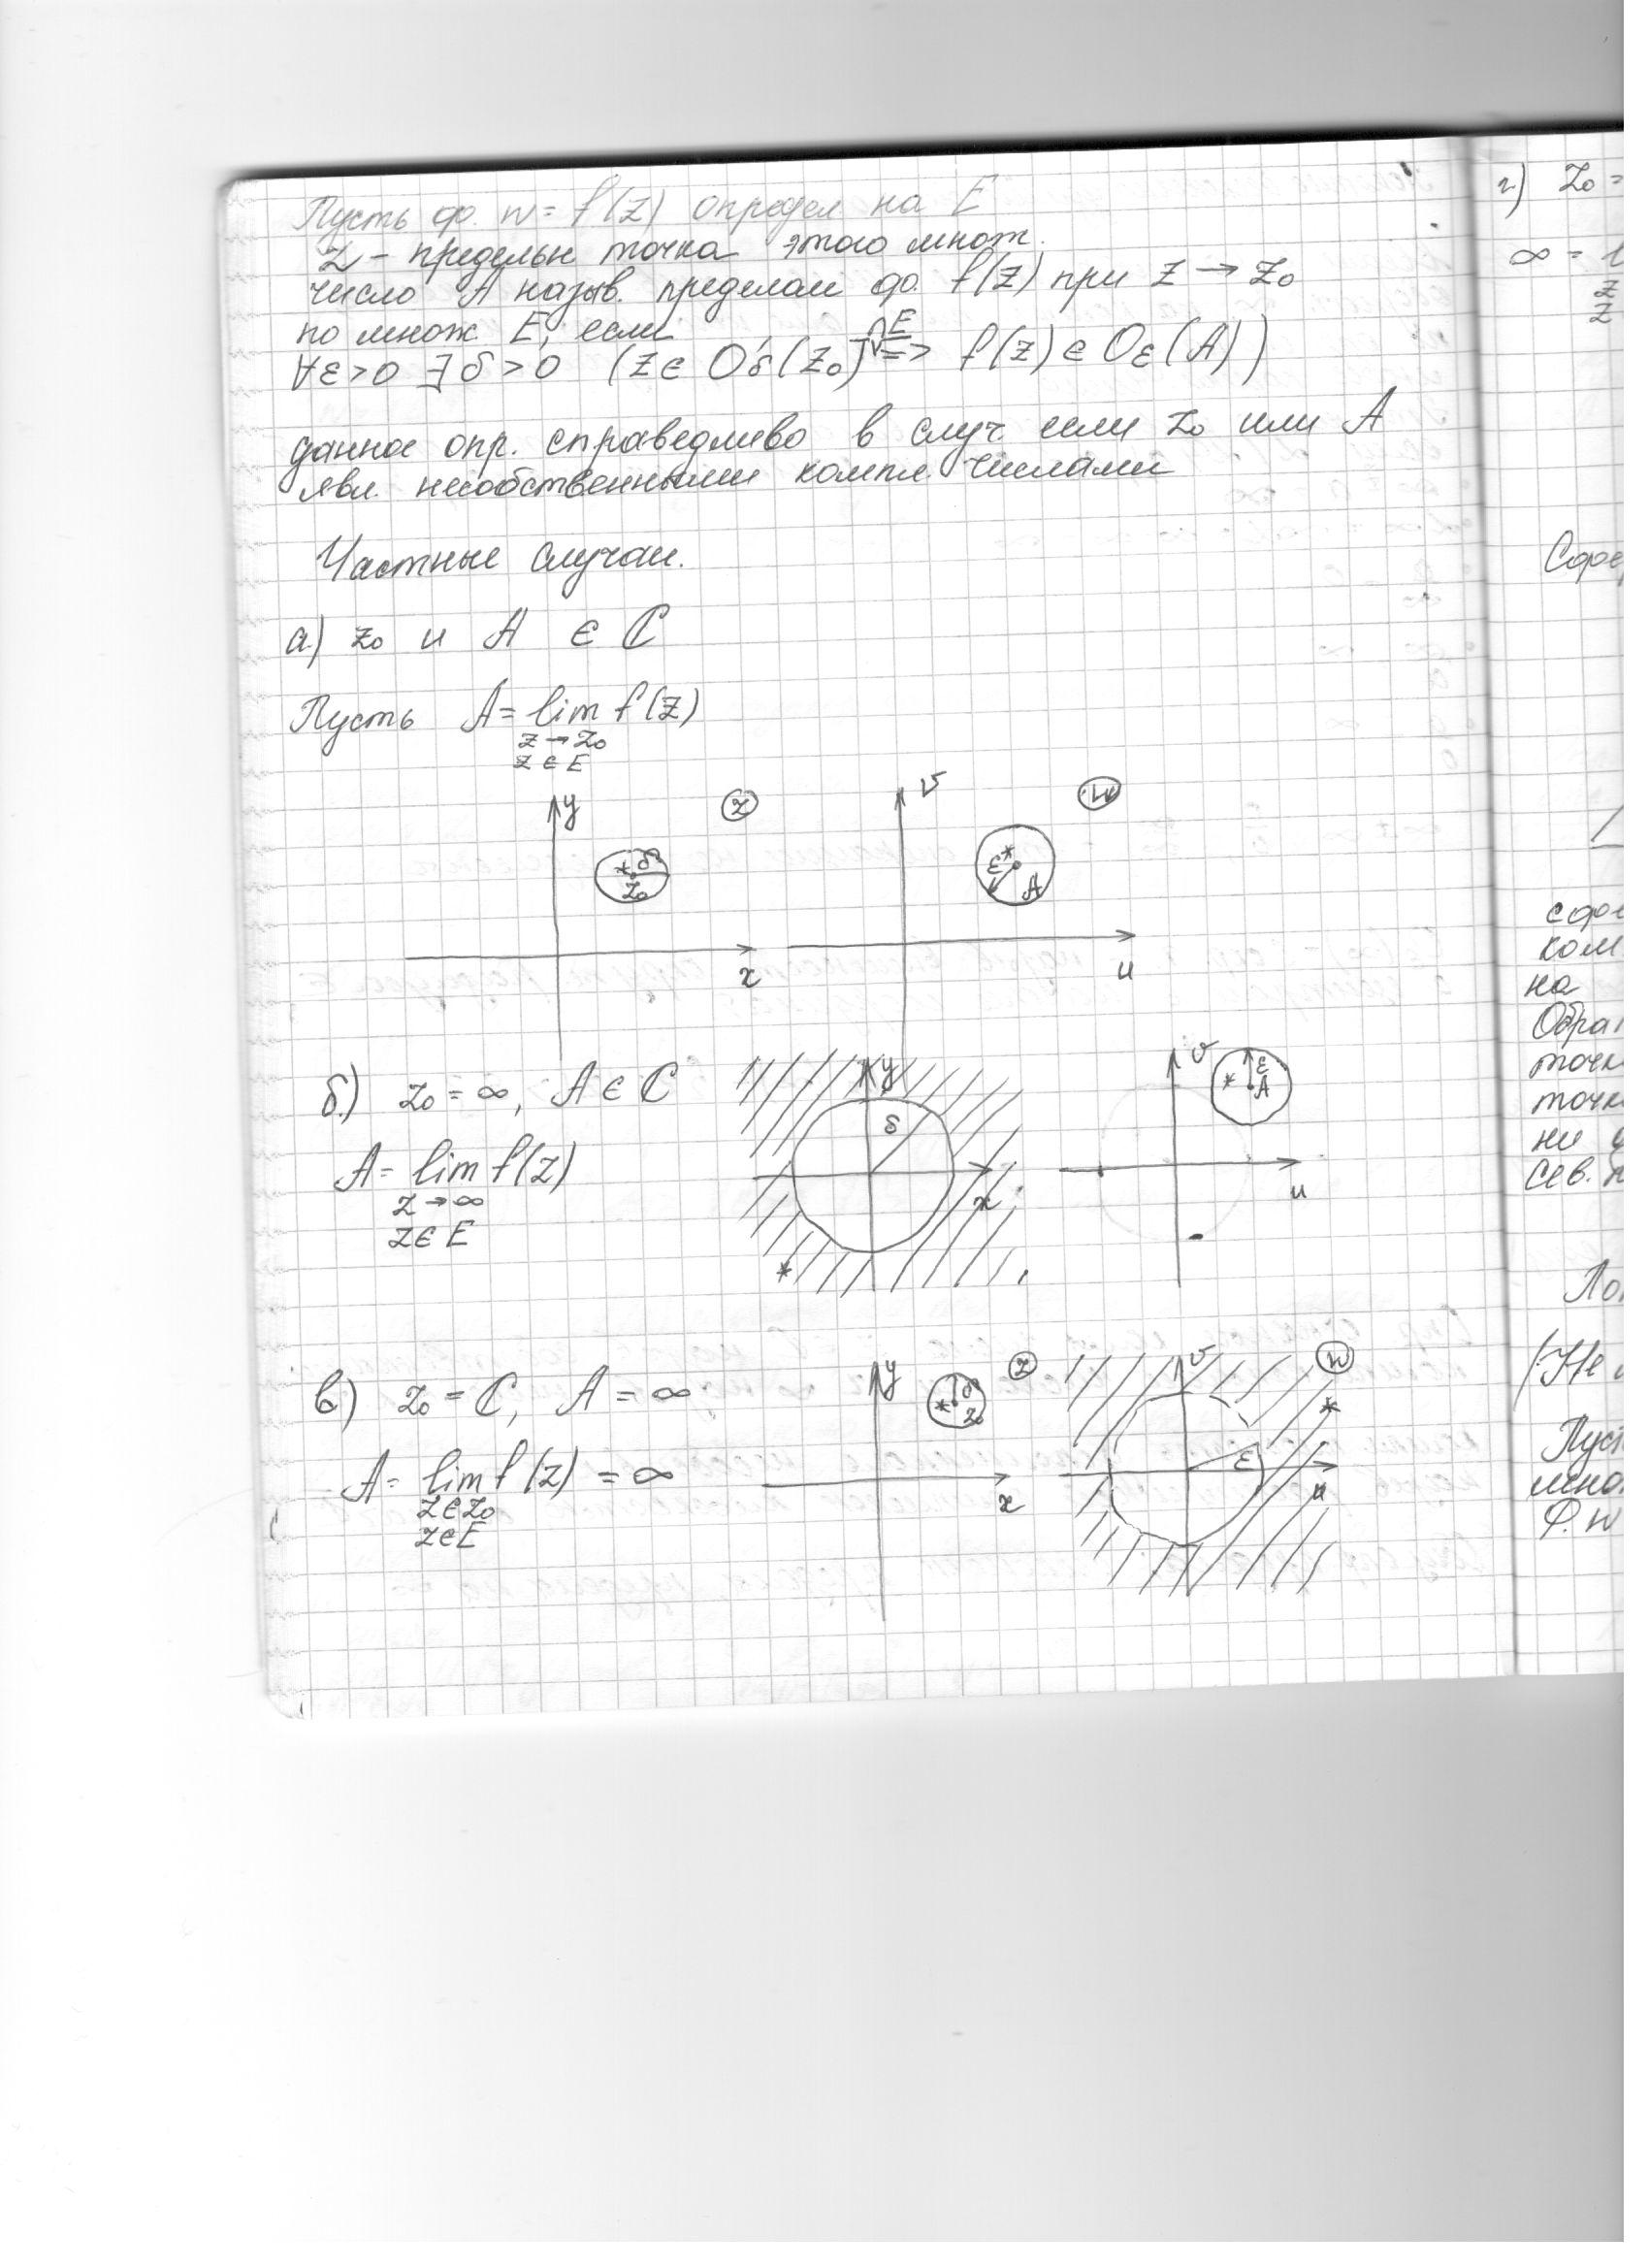 Пусть ф. w = f(z) определ на E
z – предельн точка этого множ.
число A назыв. пределом ф. f(z) при z → z₀
по множ. E, если
∀ε>0 ∃δ>0 (z ∈ O'δ(z₀)∩E => f(z) ∈ Oε(A))
данное опр. справедливо в случ. если z₀ или A
явл. несобственными компл. числами
Частные случаи.
а) z₀ и A ∈ ℂ
Пусть A = lim f(z)
z → z₀
z ∈ E
y z v w
* δ z₀ ε * A
x u
б.) z₀ = ∞, A ∈ ℂ
A = lim f(z)
z → ∞
z ∈ E
y δ x *
v ε * A u
в) z₀ = ℂ, A = ∞
A = lim f(z) = ∞
z ∈ z₀
z ∈ E
y z * δ z₀ x
v w * ε u
г) z₀ =
∞ =
z
z
на
ни
Сев.
Ф. w